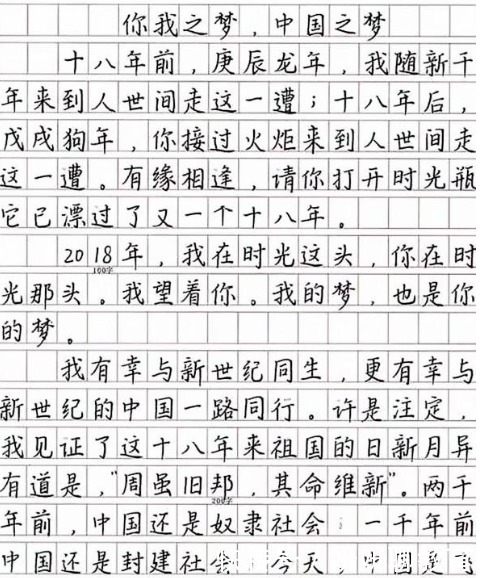 你我之梦，中国之梦
十八年前，庚辰龙年，我随新千
年来到人世间走这一遭；十八年后，
戊戌狗年，你接过火炬来到人世间走
这一遭。有缘相逢，请你打开时光瓶
它已漂过了又一个十八年。
2018年，我在时光这头，你在时
100字
光那头。我望着你。我的梦，也是你
的梦。
我有幸与新世纪同生，更有幸与
新世纪的中国一路同行。许是注定，
我见证了这十八年来祖国的日新月异
有道是，"周虽旧邦，其命维新"。两千
200字
年前，中国还是奴隶社会；一千年前
中国还是封建社 今天